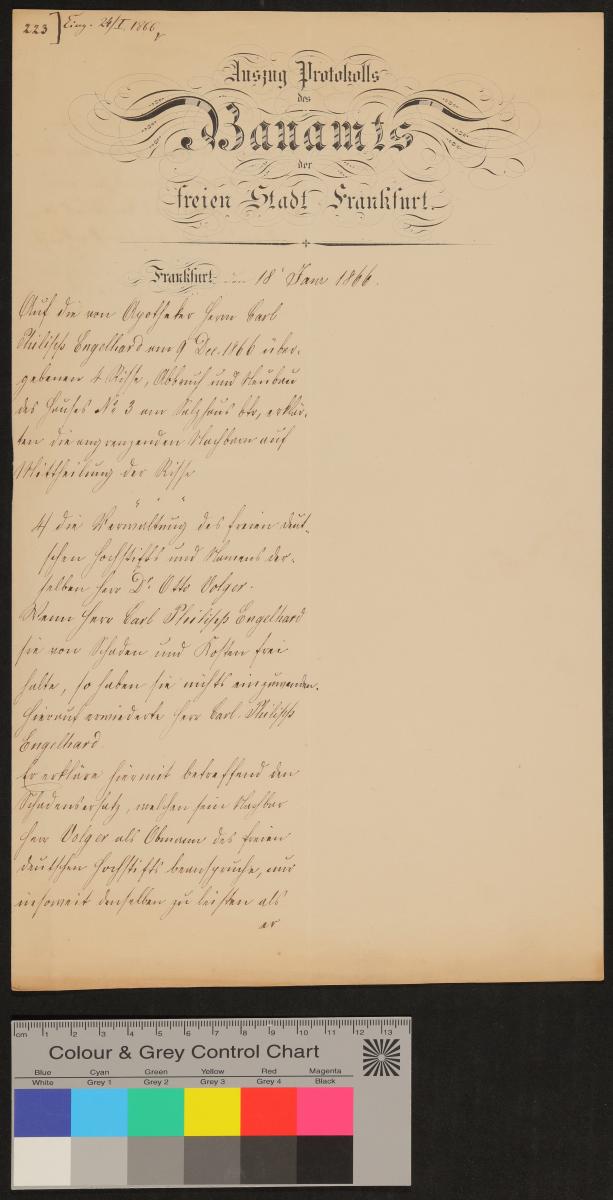 223] Eing. 24/I. 1866.
Auszug Protokolls
des
Bauamts
der
freien Stadt Frankfurt.
Frankfurt 18t Janr 1866.
Auf die von Apotheker Herrn Carl
Philipp Engelhard am 9 Dec. 1866 über-
gebenen 4 Risse, Abbruch und Neubau
des Hauses No 3 am Salzhaus btr, erklär-
ten die angrenzenden Nachbarn auf
Mittheilung der Risse
" " "
4) die Verwaltung des freien deut-
schen Hochstifts und Namens der-
selben Herr Dr Otto Volger.
Wenn Herr Carl Philipp Engelhard
sie von Schaden und Kosten frei
halte, so haben sie nichts einzuwenden.
Hierauf erwiederte Herr Carl Philipp
Engelhard.
Er erkläre hiermit betreffend den
Schadensersatz, welchen sein Nachbar
Herr Volger als Obmann des freien
deutschen Hochstifts beanspruche, nur
insoweit denselben zu leisten als
er
cm 1 2 3 4 5 6 7 8 9 10 11 12 13
Colour & Grey Control Chart
Blue Cyan Green Yellow Red Magenta
White Grey 1 Grey 2 Grey 3 Grey 4 Black